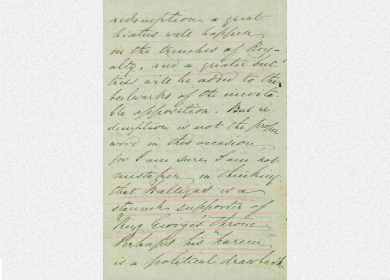 redemption a great
hiatus will happen
in the trenches of Roy-
alty, and a greater but-
tress will be added to the
bulwarks of the inevita-
ble opposition. But re-
demption is not the proper
word in this occasion
for I am sure I am not
mistaken in thinking
that Halligas is a
staunch supporter of
King George's throne
Perhaps his "harem"
is a political drawback